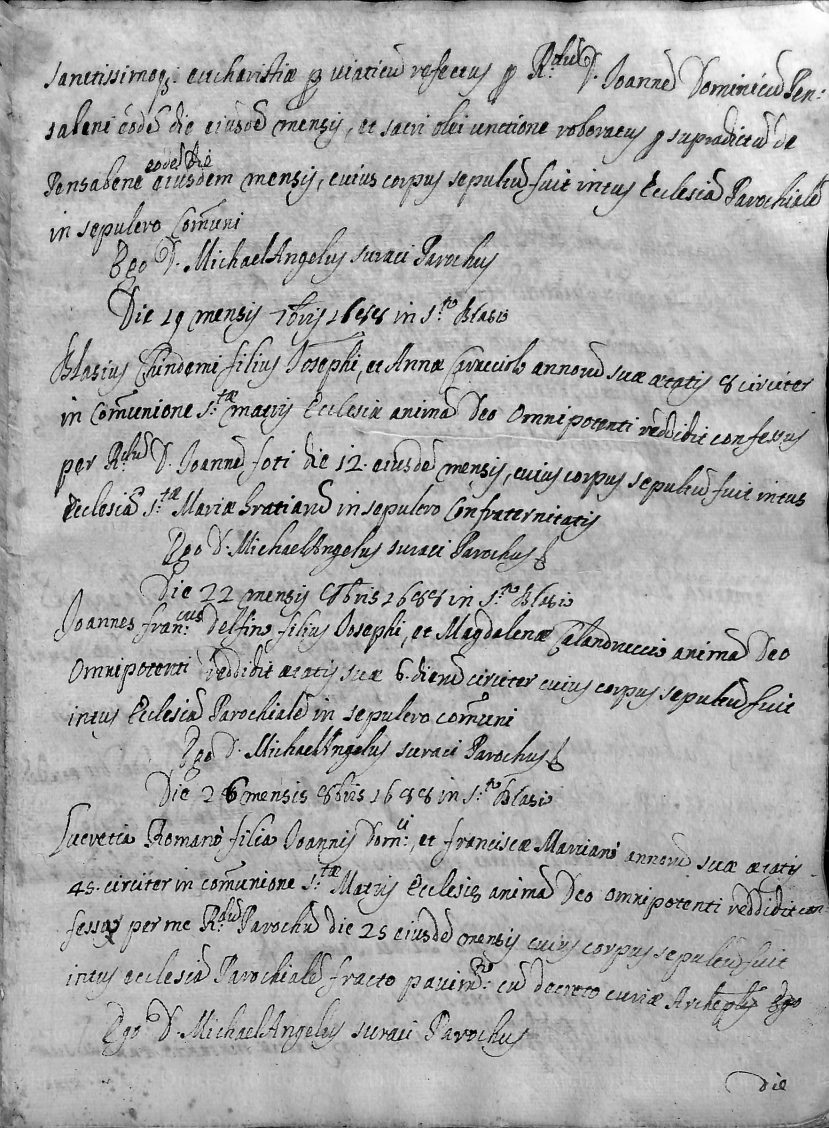 sanctissimoq; eucharistiæ p viaticũ refectus p R.dũ D. Joannẽ Dominicũ Pen:
sabeni eodẽ die eiusdẽ mensis, et sacri olei unctione roboratus p supradictũ de
eodẽ die
Pensabene eiusdem mensis, cuius corpus sepultũ fuit intus Ecclesiã Parochialẽ
in sepulcro Com̃uni
Ego D. MichaelAngelus suraci Parochus
Die 19 mensis 7bris 1688 in S.to Blasio
Blasius Cundemi filius Josephi, et Annæ Caracciolo annorũ suæ ætatis 8 circiter
in Com̃unione S.tæ matris Ecclesiæ animã Deo Omnipotenti reddidit confessus
per R.dũ D. Joannẽ foti die 12. eiusdẽ mensis, cuius corpus sepultũ fuit intus
Ecclesiã S.tæ Mariæ Gratiarũ in sepulcro Confraternitatis
Ego D. MichaelAngelus suraci Parochus
Die 22 mensis 8bris 1688 in S.to Blasio
Joannes fran.cus Delfino filius Josephi, et Magdalenæ Calandruccio animã Deo
Omnipotenti reddidit ætatis suæ 6. dierũ circiter cuius corpus sepultũ fuit
intus Ecclesiã Parochialẽ in sepulcro com̃uni
Ego D. MichaelAngelus suraci Parochus
Die 26 mensis 8bris 1688 in S.to Blasio
Lucretia Romanò filia Joannis Dom.ci, et franciscæ Marrianò annorũ suæ ætatis
45. circiter in com̃unione S.tæ Matris Ecclesiæ animã Deo omnipotenti reddidit con-
fessa per me R.dũ Parochũ die 25 eiusdẽ mensis cuius corpus sepultũ fuit
intus ecclesiã Parochialẽ fracto pauim.to cũ decreto curiæ Archieplis Ego
Ego D. MichaelAngelus suraci Parochus
die